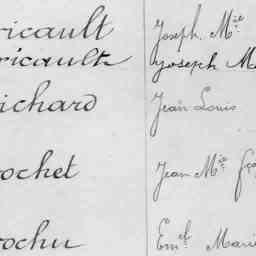 ricault Joseph. Mie
ricault Joseph M
ichard Jean Louis
ochet Jean Mie
ochu Emel Marie